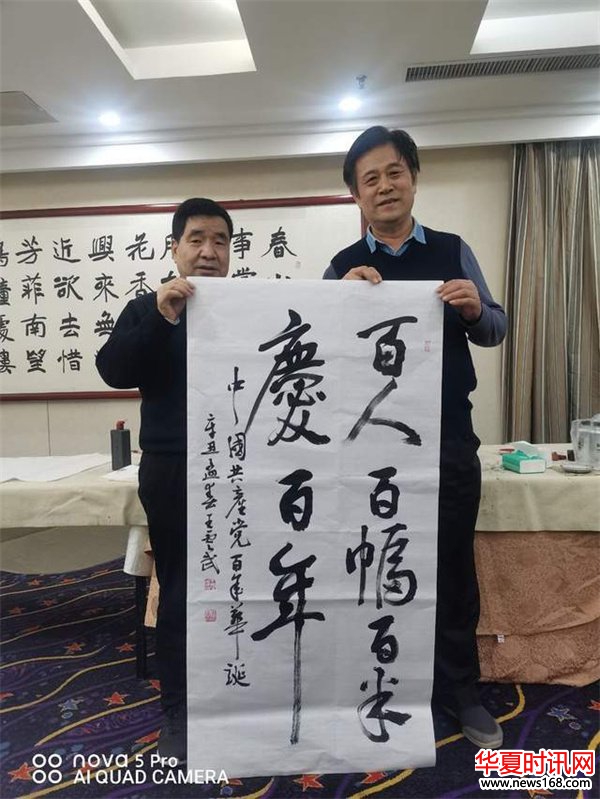 百人百幅百米
慶百年
中國共產党百年華诞
辛丑孟春王雲武
春
事
花香
興來
近欲去惜
芳菲南望
nova 5 Pro
AI QUAD CAMERA
华夏时讯网
www.news168.com